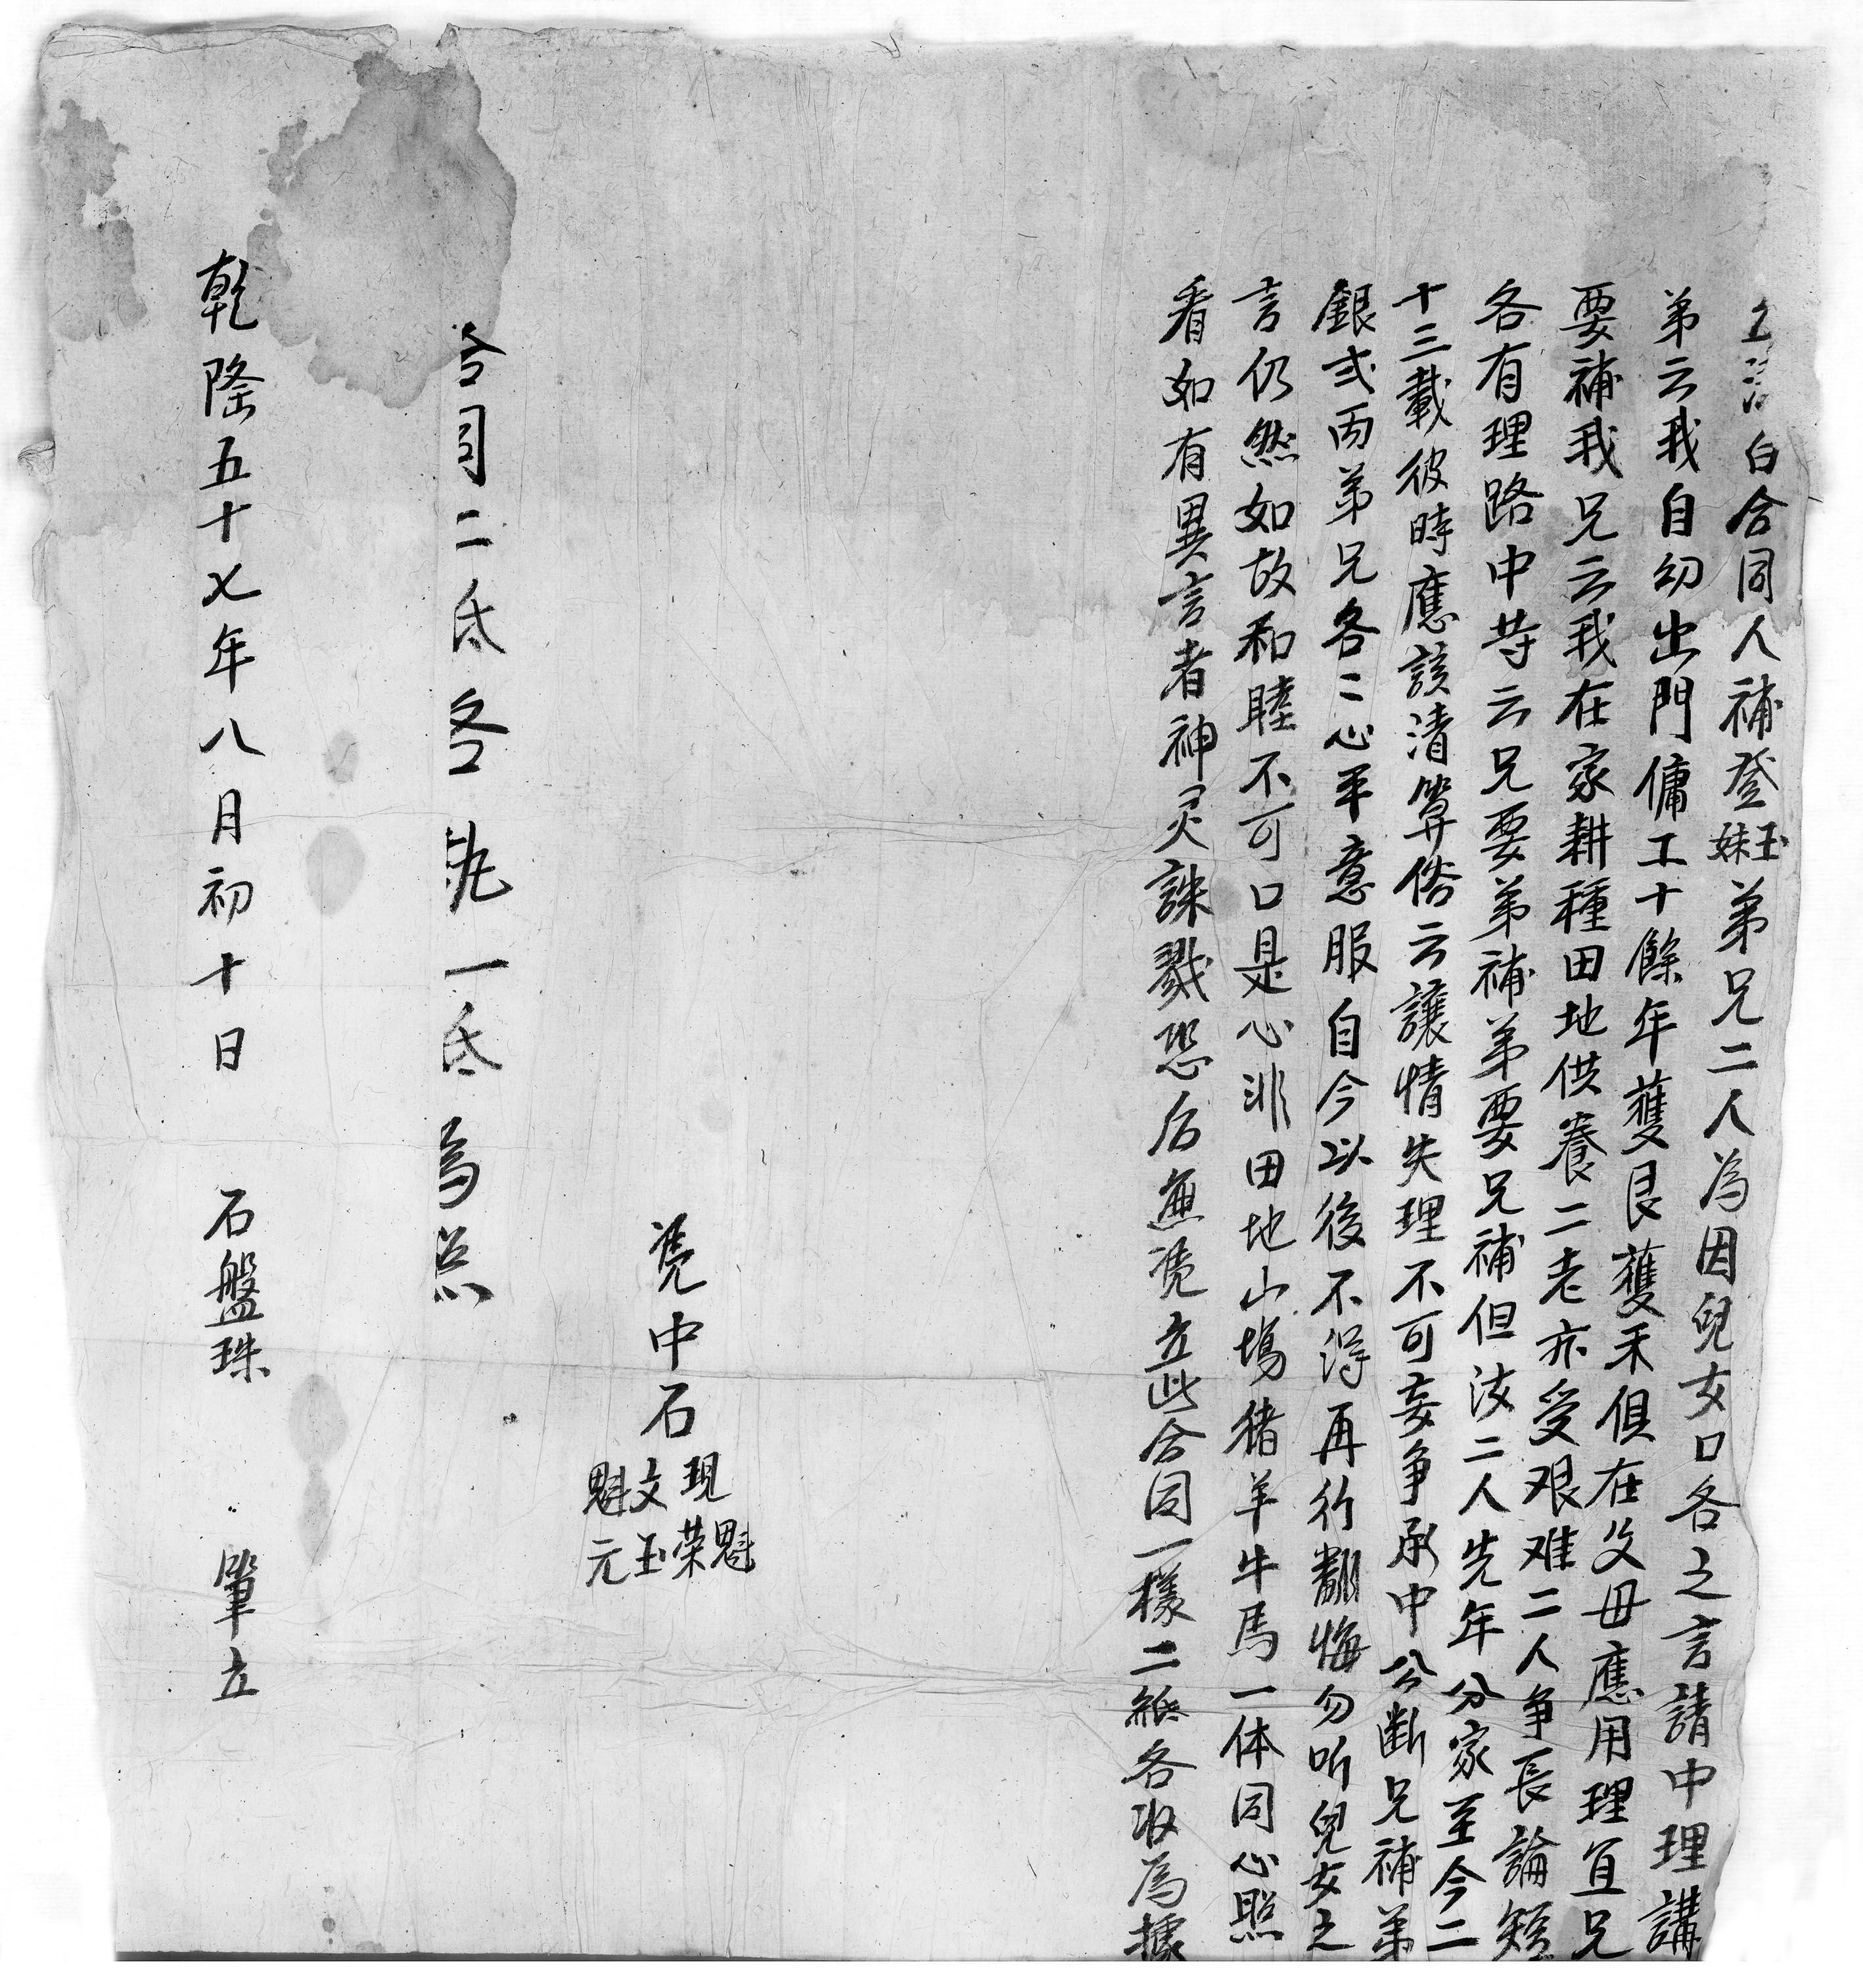 立清白合同人補登玉妹弟兄二人為因兒女口各之言請中理講
弟云我自幼出門傭工十餘年獲艮獲禾俱在父母應用理宜兄
要補我兄云我在家耕種田地供養二老亦受艰难二人争長論短
各有理路中共云兄要弟補弟要兄補但汝二人先年分家至今二
十三載彼時應該清算俗云讓情失理不可妄争承中公断兄補弟
銀弍両弟兄各二心平意服自今以後不得再行翻悔勿听兒女之
言仍然如故和睦不可口是心非田地山塲猪羊牛馬一体同心照
看如有異言者神灵誅戮恐后無凴立此合同一樣二紙各收為據
凴中石
現魁
荣
文玉
魁元
合同二岙各执一岙為㸃
乾隆五十乂年八月初十日 石盤珠 筆立